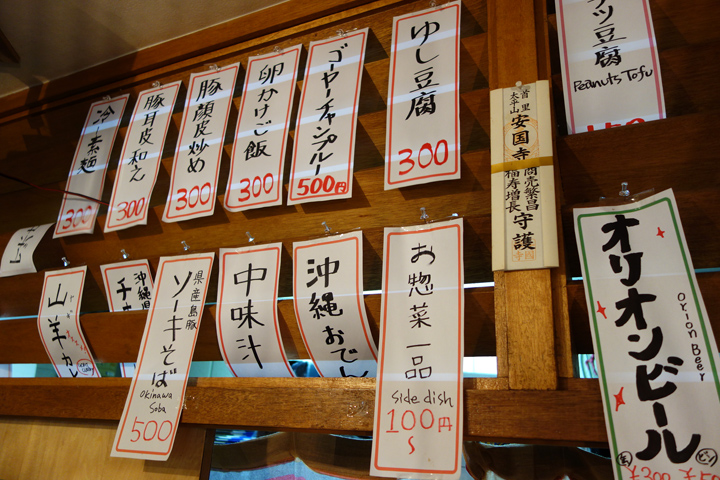 冷し素麺
300
豚耳皮和え
300
豚顔皮炒め
300
卵かけご飯
300
ゴーヤーチャンプルー
500円
ゆし豆腐
300
首里
太平山
安国寺
商売繁昌
福寿増長
守護
豆腐
Peanuts Tofu
山羊カレ
沖縄
チ
県産島豚
ソーキそば
Okinawa
Soba
500
中味汁
沖縄おでん
お惣菜一品
side dish
100円
~
オリオンビール
Orion Beer
¥300